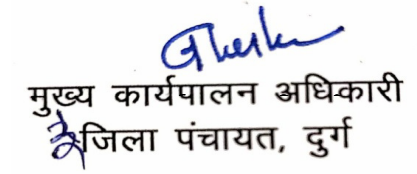 मुख्य कार्यपालन अधिकारी
जिला पंचायत, दुर्ग